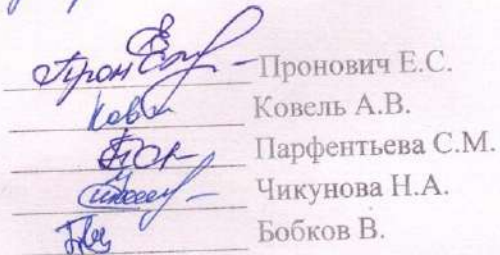 Пронович Е.С.
Ковель А.В.
Парфентьева С.М.
Чикунова Н.А.
Бобков В.